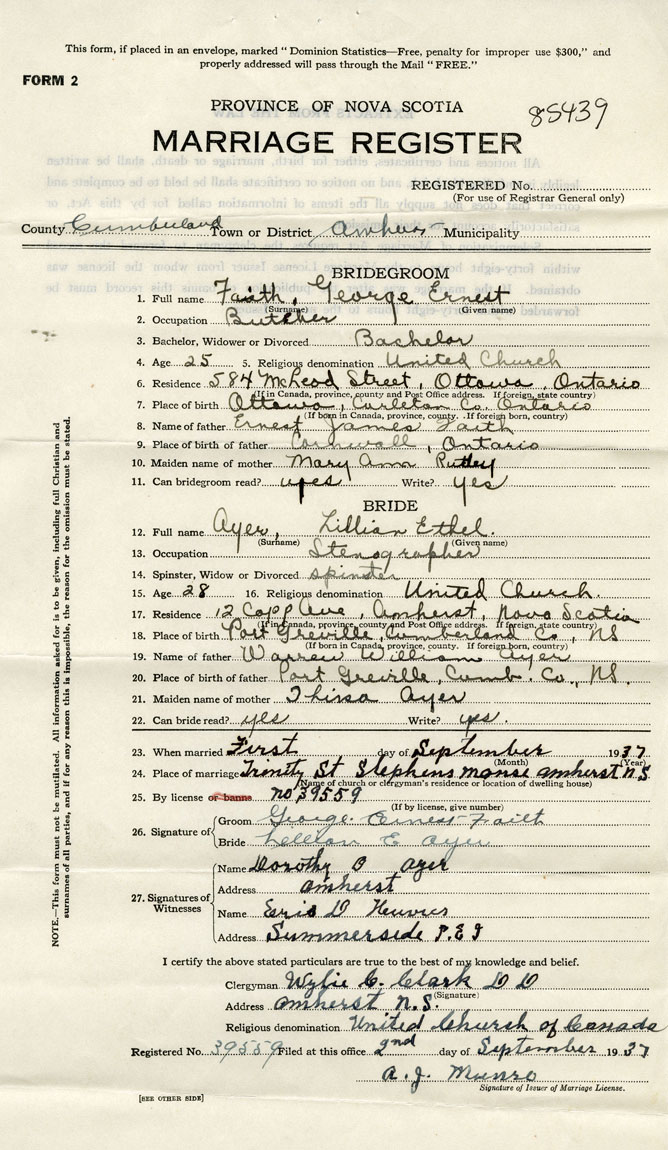 This form, if placed in an envelope, marked "Dominion Statistics—Free, penalty for improper use $300," and
properly addressed will pass through the Mail "FREE."
FORM 2
PROVINCE OF NOVA SCOTIA
85439
MARRIAGE REGISTER
REGISTERED No.
(For use of Registrar General only)
County Cumberland Town or District Amherst Municipality
BRIDEGROOM
1. Full name Faith, George Ernest
(Surname) (Given name)
2. Occupation Butcher
3. Bachelor, Widower or Divorced Bachelor
4. Age 25 5. Religious denomination United Church
6. Residence 584 McLeod Street, Ottawa, Ontario
(If in Canada, province, county and Post Office address. If foreign, state country)
7. Place of birth Ottawa, Carleton Co. Ontario
(If born in Canada, province, county. If foreign born, country)
8. Name of father Ernest James Faith
9. Place of birth of father Cornwall, Ontario
10. Maiden name of mother Mary Ann Putley
11. Can bridegroom read? yes Write? yes
BRIDE
12. Full name Ayer, Lillian Ethel.
(Surname) (Given name)
13. Occupation Stenographer
14. Spinster, Widow or Divorced spinster
15. Age 28 16. Religious denomination United Church.
17. Residence 12 Copp Ave, Amherst, Nova Scotia
(If in Canada, province, county and Post Office address. If foreign, state country)
18. Place of birth Port Greville, Cumberland Co, NS
(If born in Canada, province, county. If foreign born, country)
19. Name of father Warren William Ayer
20. Place of birth of father Port Greville, Cumb. Co., NS.
21. Maiden name of mother Thirsa Ayer
22. Can bride read? yes Write? yes.
23. When married First day of September 1937
(Month) (Year)
24. Place of marriage Trinity St Stephens manse Amherst N.S.
(Name of church or clergyman's residence or location of dwelling house)
25. By license or banns no 39559
(If by license, give number)
26. Signature of
Groom George Ernest Faith
Bride Lillian E Ayer
27. Signatures of Witnesses
Name Dorothy O Ayer
Address Amherst
Name Eric D
Address Summerside P.E.I
I certify the above stated particulars are true to the best of my knowledge and belief.
Clergyman Wylie C. Clark D D
(Signature)
Address Amherst N.S.
Religious denomination United Church of Canada
Registered No. 39559 Filed at this office 2nd day of September 1937
A. J. Munro
Signature of Issuer of Marriage License.
[SEE OTHER SIDE]
NOTE.—This form must not be mutilated. All information asked for is to be given, including full Christian and
surnames of all parties, and if for any reason this is impossible, the reason for the omission must be stated.